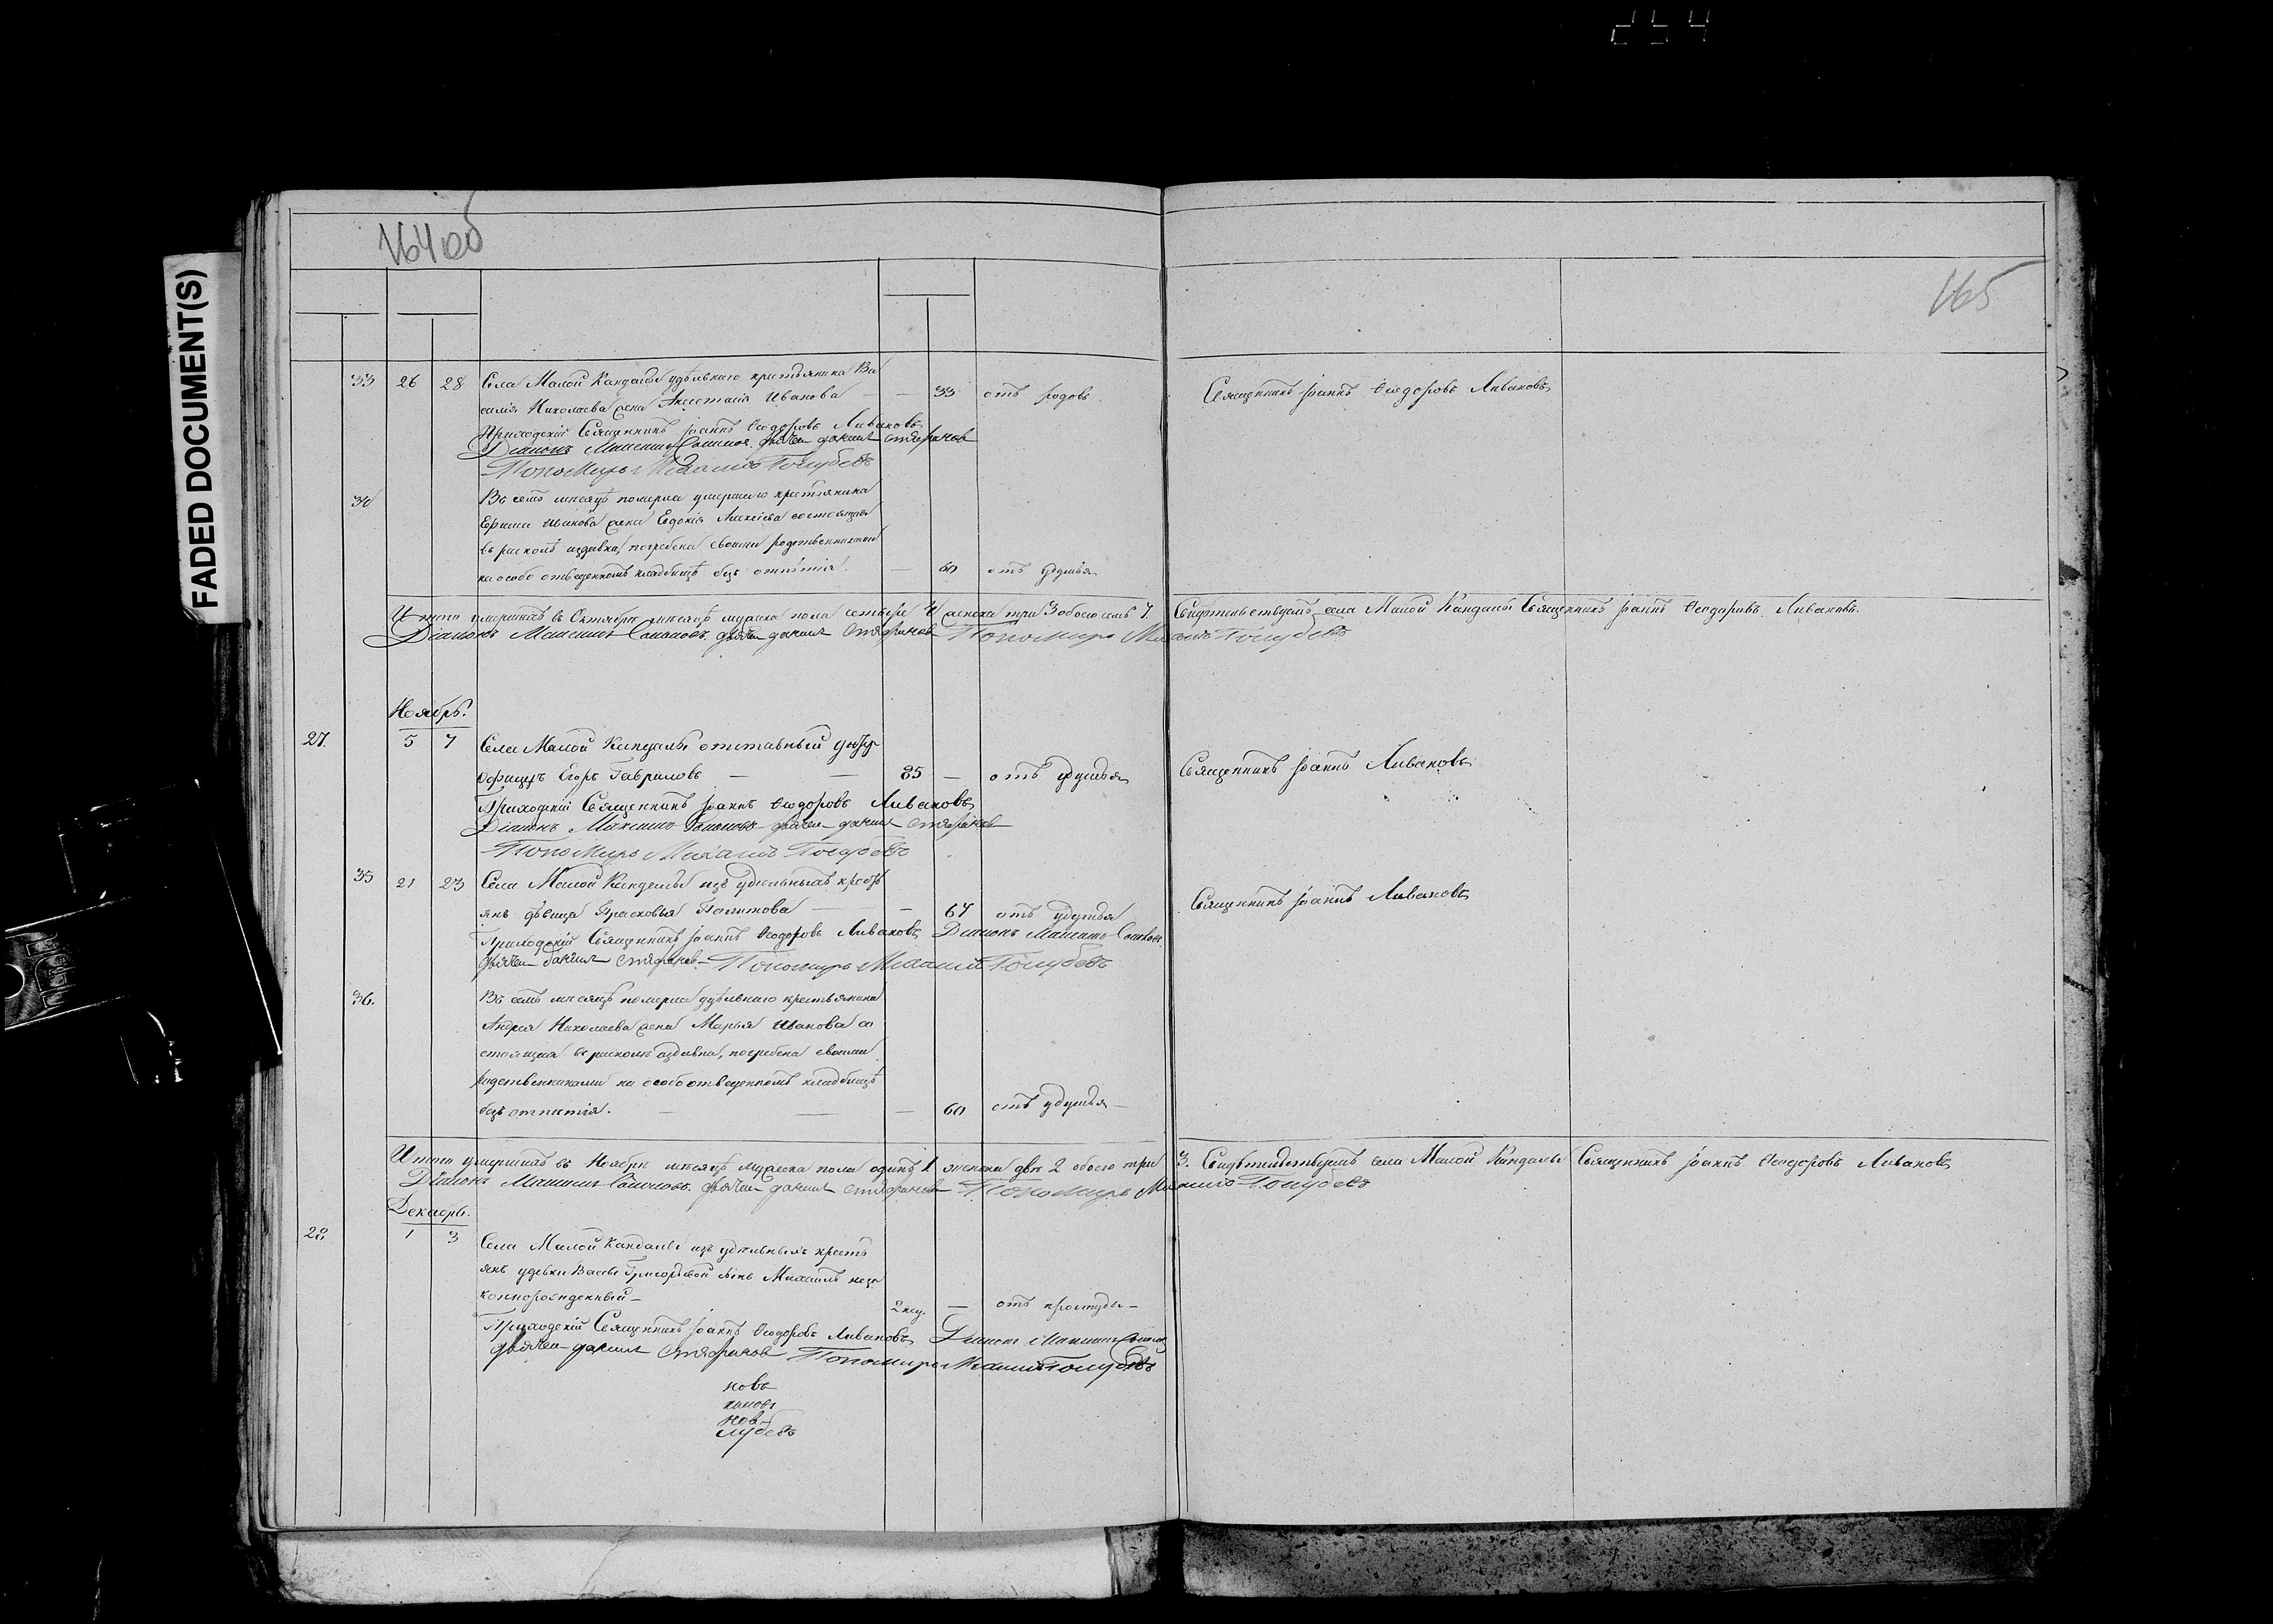 254
FADED DOCUMENT(S)
164 об
165
33 26 28 Села Малой Кандалы удѣльнаго крестьянина Ва
силія Николаева жена Анастасія Иванова — — 33 отъ родовъ Священникъ Іоаннъ Ѳеодоровъ Ливановъ
Приходскій Священникъ Іоаннъ Ѳеодоровъ Ливановъ
Діаконъ Максимъ дьячекъ Даніилъ Стефановъ
Пономарь Михаилъ Голубевъ
34 Въ семъ мѣсяцѣ померла умершаго крестьянина
Ефима Иванова жена Евдокія Алексіева состоящая
въ расколѣ издавна, погребена своими родственниками
на особо отведенномъ кладбищѣ безъ отпѣтія. — 60 отъ удушья
Итого умершихъ въ Октябрѣ мѣсяцѣ мужеска пола четыре 4 женска три 3 обоего семь 7. Свидѣтельствуетъ села Малой Кандалы Священникъ Іоаннъ Ѳеодоровъ Ливановъ.
Діаконъ Максимъ дьячекъ Даніилъ Стефановъ Пономарь Михаилъ Голубевъ
Ноябрь.
27. 5 7 Села Малой Кандалы отставный унтеръ
Офицеръ Егоръ Гавриловъ — — 85 — отъ удушья Священникъ Іоаннъ Ливановъ
Приходскій Священникъ Іоаннъ Ѳеодоровъ Ливановъ
Діаконъ Максимъ дьячекъ Даніилъ Стефановъ
Пономарь Михаилъ Голубевъ
35 21 23 Села Малой Кандалы изъ удѣльныхъ кресть
янъ дѣвица Прасковья — — 67 отъ удушья Священникъ Іоаннъ Ливановъ
Приходскій Священникъ Іоаннъ Ѳеодоровъ Ливановъ Діаконъ Максимъ
дьячекъ Даніилъ Стефановъ Пономарь Михаилъ Голубевъ
36. Въ семъ мѣсяцѣ померла удѣльнаго крестьянина
Андрея Николаева жена Марья Иванова со
стоящая въ расколѣ издавна, погребена своими
родственниками на особо отведенномъ кладбищѣ
безъ отпѣтія. — — — 60 отъ удушья —
Итого умершихъ въ Ноябрѣ мѣсяцѣ мужеска пола одинъ 1 женска двѣ 2 обоего три 3. Свидѣтельствуетъ села Малой Кандалы Священникъ Іоаннъ Ѳеодоровъ Ливановъ
Діаконъ Максимъ дьячекъ Даніилъ Стефановъ Пономарь Михаилъ Голубевъ
Декабрь.
28 1 3 Села Малой Кандалы изъ удѣльныхъ кресть
янъ Григорьевой сынъ Михаилъ неза
коннорожденный — 2 нед. — отъ простуды —
Приходскій Священникъ Іоаннъ Ѳеодоровъ Ливановъ Діаконъ Максимъ
дьячекъ Даніилъ Стефановъ Пономарь Михаилъ Голубевъ
новъ
новъ
лубевъ